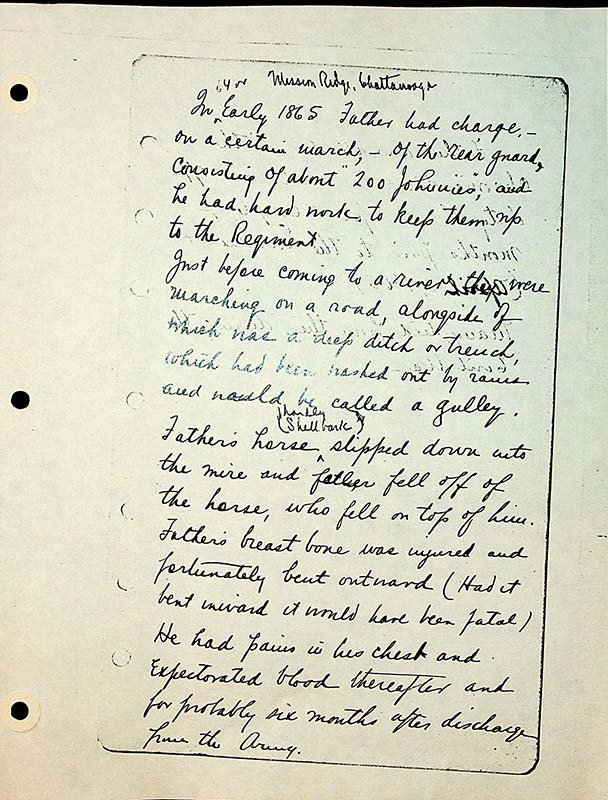 64 or Mission Ridge, Chattanooga
In Early 1865 Father had charge, -
on a certain march, - of the rear guard,
consisting of about "200 Johnnies", and
he had hard work to keep them up
to the Regiment
Just before coming to a river they were
marching on a road, alongside of
which was a deep ditch or trench,
which had been washed out by rains
and would be called a gulley.
(Shellbark)
Father's horse slipped down into
the mire and father fell off of
the horse, who fell on top of him.
Father's breast bone was injured and
fortunately bent outward (Had it
bent inward it would have been fatal)
He had pains in his chest and
Expectorated blood thereafter and
for probably six months after discharge
from the Army.